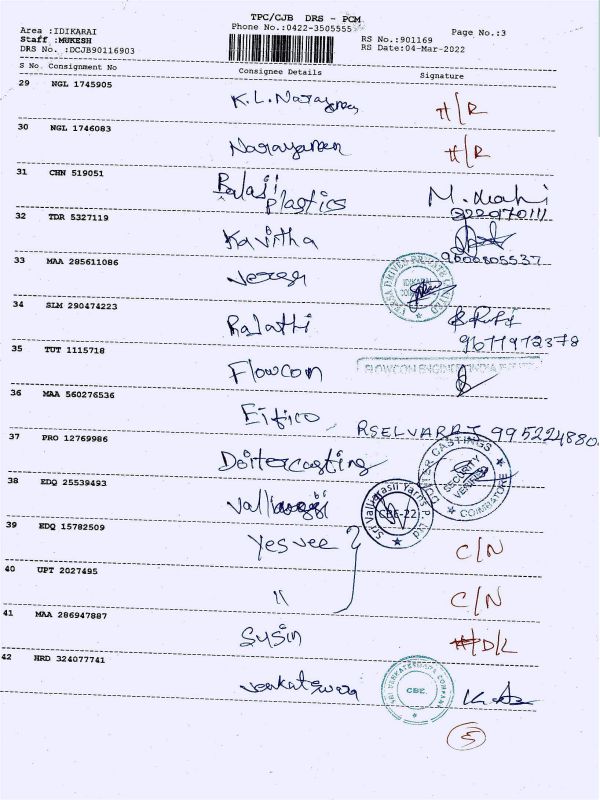 TPC/CJB DRS - PCM
Area :IDIKARAI Phone No.:0422-3505555 Page No.:3
Staff :MUKESH RS No.:901169
DRS No. :DCJB90116903 RS Date:04-Mar-2022
S No. Consignment No Consignee Details Signature
29 NGL 1745905 K.L. Narayanan H/R
30 NGL 1746083 Narayanan H/R
31 CHN 519051 Balaji
plastics
32 TDR 5327119 Kavitha
9600805537
33 MAA 285611086
34 SLM 290474223
9677972378
35 TUT 1115718 Flowcom
36 MAA 560276536 Eifico RSELVARAJ 995224880
37 PRO 12769986 Doitercasting
DUITER CASTINGS
SECURITY
COIMBATORE
38 EDQ 25539493
Sri Vallparasii Yarns P. Ltd
CBE-22
39 EDQ 15782509 Yesvee C/N
40 UPT 2027495 " C/N
41 MAA 286947887 Sysin D/L
42 HRD 324077741 Venkateswara
SRI VENKATESWARA COMPANY
CBE.
5